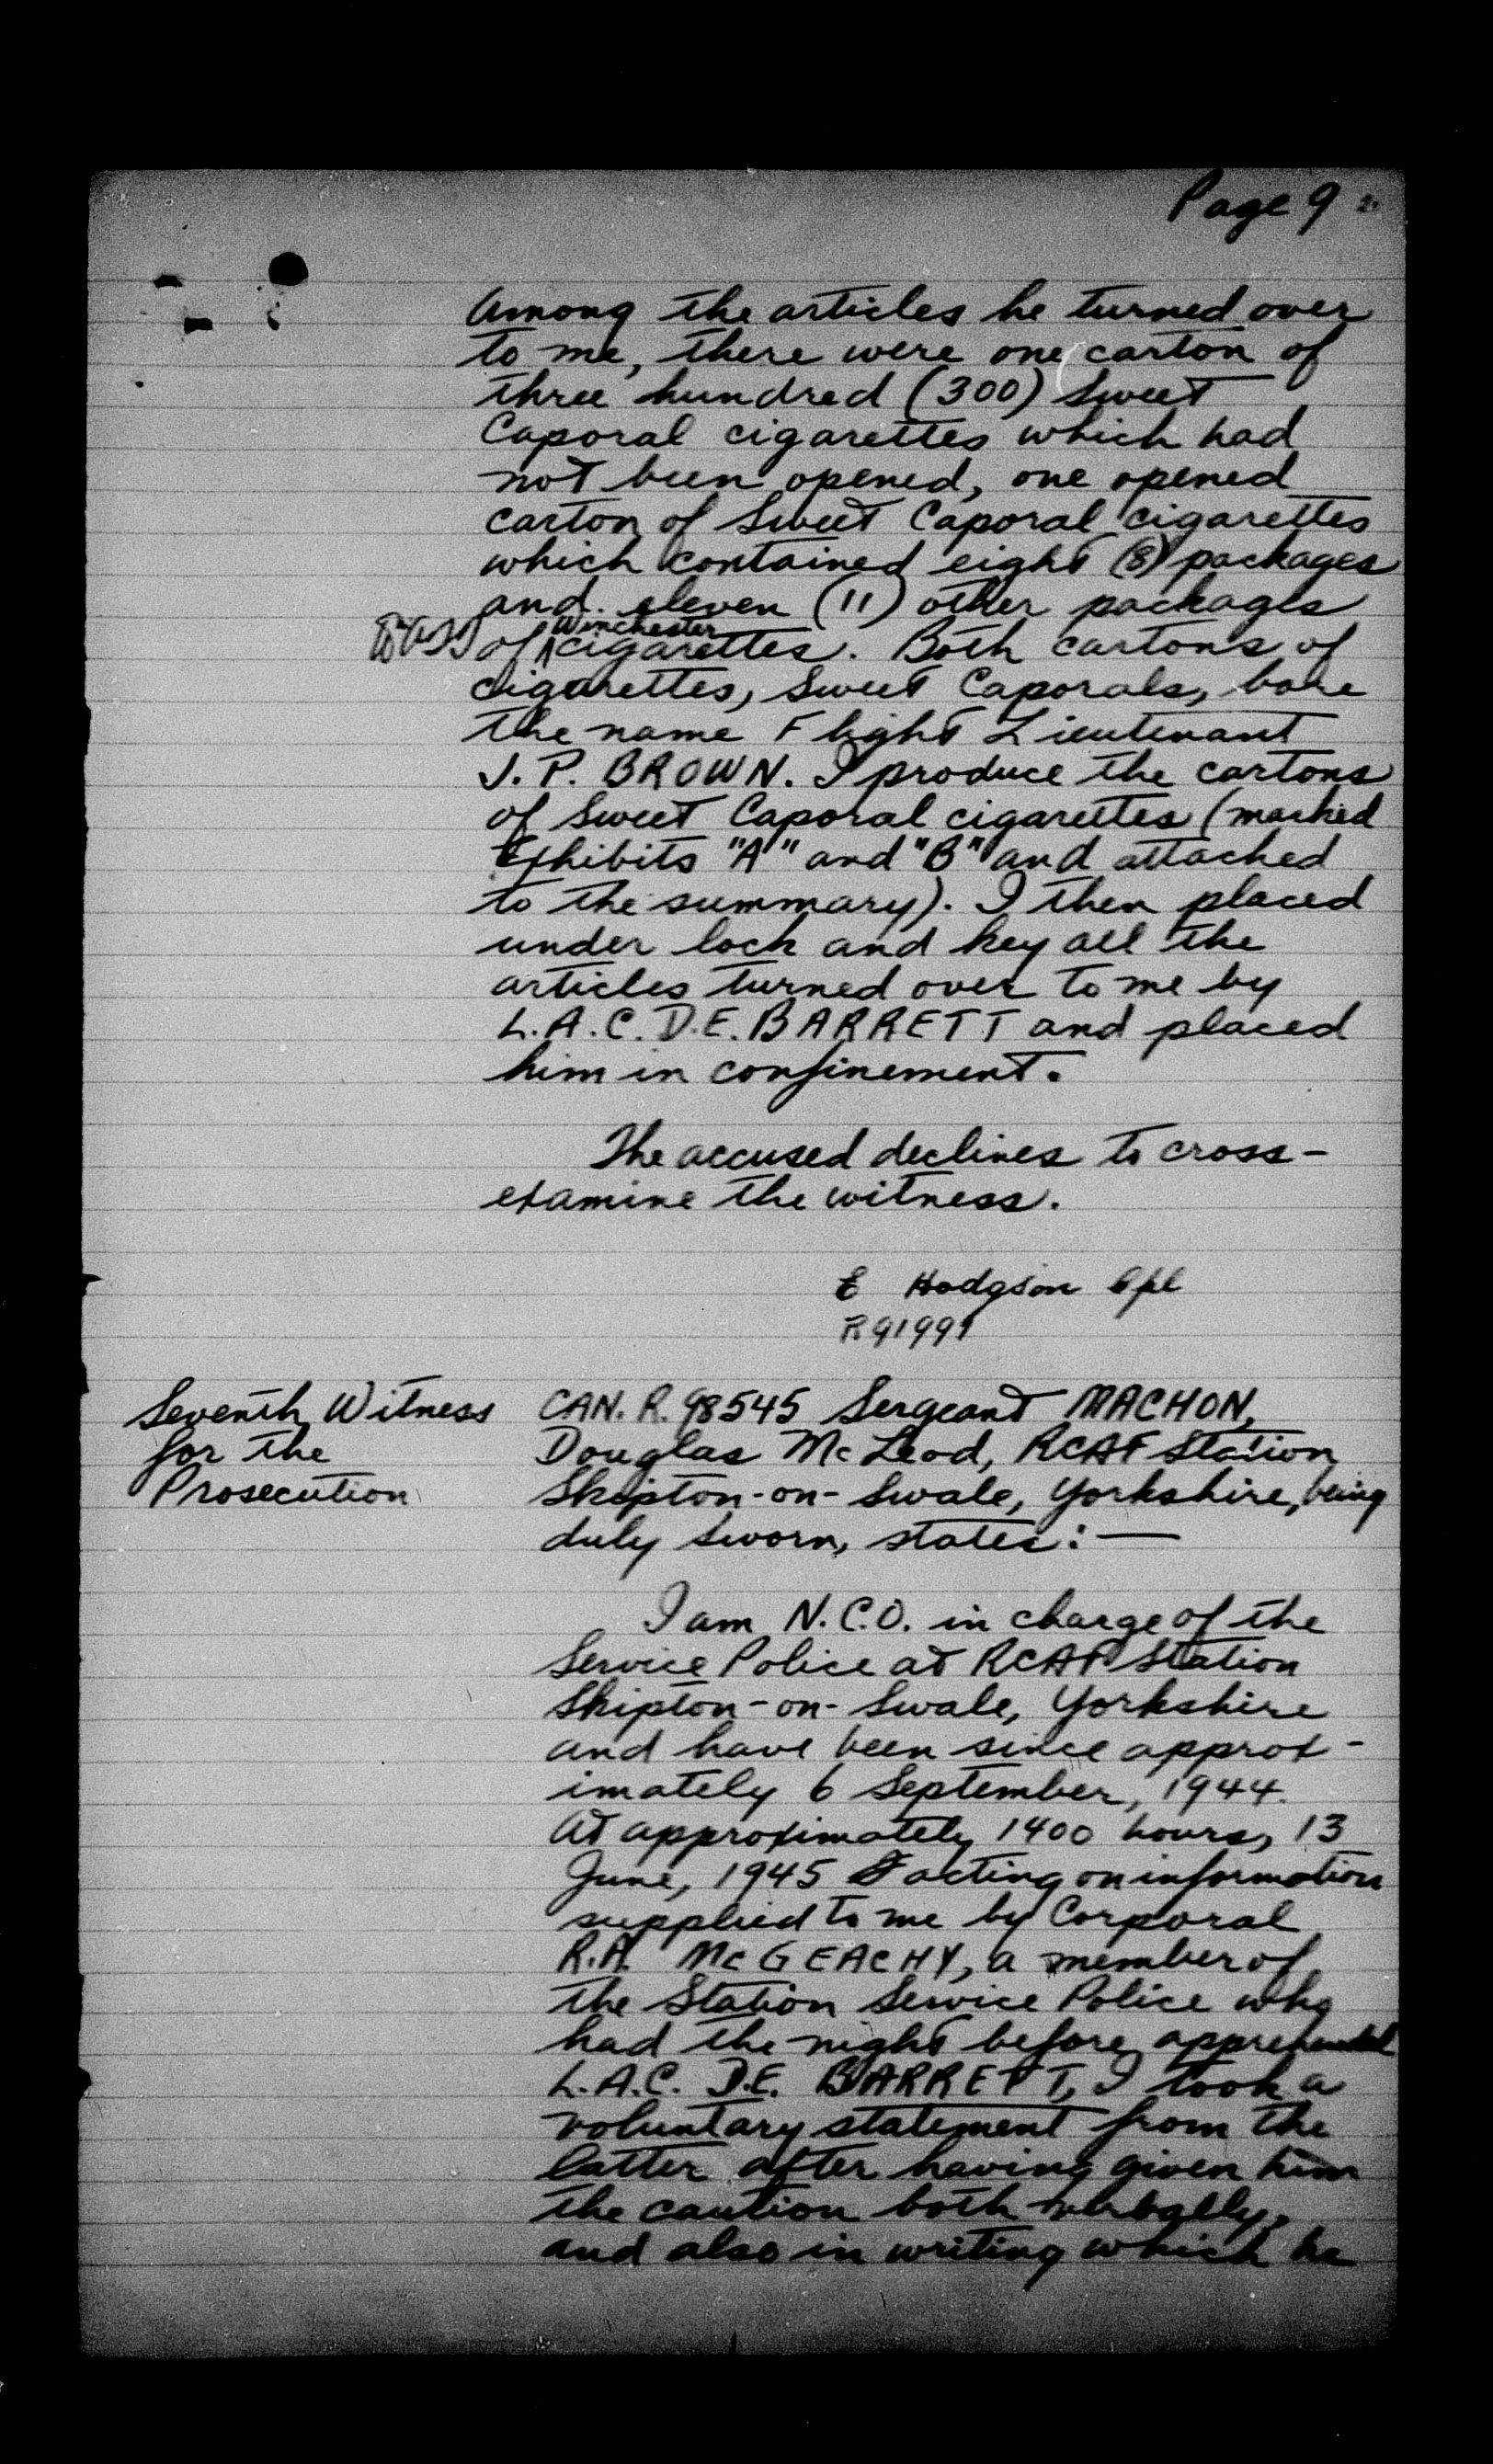 Page 9
Among the articles he turned over
to me, there were one carton of
three hundred (300) Sweet
Caporal cigarettes which had
not been opened, one opened
carton of Sweet Caporal cigarettes
which contained eight (8) packages
and eleven (11) other packages
Winchester
of cigarettes. Both cartons of
cigarettes, Sweet Caporals, bore
the name Flight Lieutenant
J. P. BROWN. I produce the cartons
of Sweet Caporal cigarettes (marked
Exhibits "A" and "B" and attached
to the summary). I then placed
under lock and key all the
articles turned over to me by
L.A.C. D.E. BARRETT and placed
him in confinement.
The accused declines to cross-
examine the witness.
E Hodgson Cpl
R91991
Seventh Witness
for the
Prosecution
CAN. R. 98545 Sergeant MACHON,
Douglas McLeod, RCAF Station
Skipton-on-Swale, Yorkshire, being
duly sworn, states:—
I am N.C.O. in charge of the
Service Police at RCAF Station
Skipton-on-Swale, Yorkshire
and have been since approx-
imately 6 September, 1944.
At approximately 1400 hours, 13
June, 1945 acting on information
supplied to me by Corporal
R.A. McGEACHY, a member of
the Station Service Police who
had the night before apprehended
L.A.C. D.E. BARRETT, I took a
voluntary statement from the
latter after having given him
the caution both verbally,
and also in writing which he